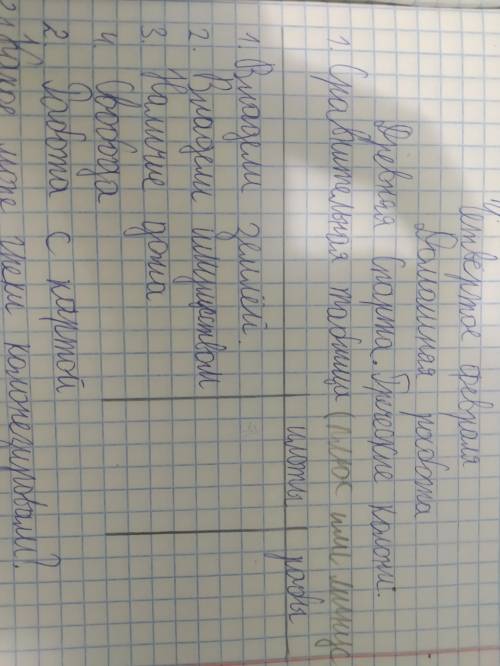 Четвертое февраля
Домашняя работа
Древняя Спарта. Греческие колонии.
1. Сравнительная таблица (плюс или минус
илоты рабы
1. Владели землёй
2. Владели имуществом
3. Наличие дома
4. Свобода
2. Работа с картой
1) море греки колонизировали?